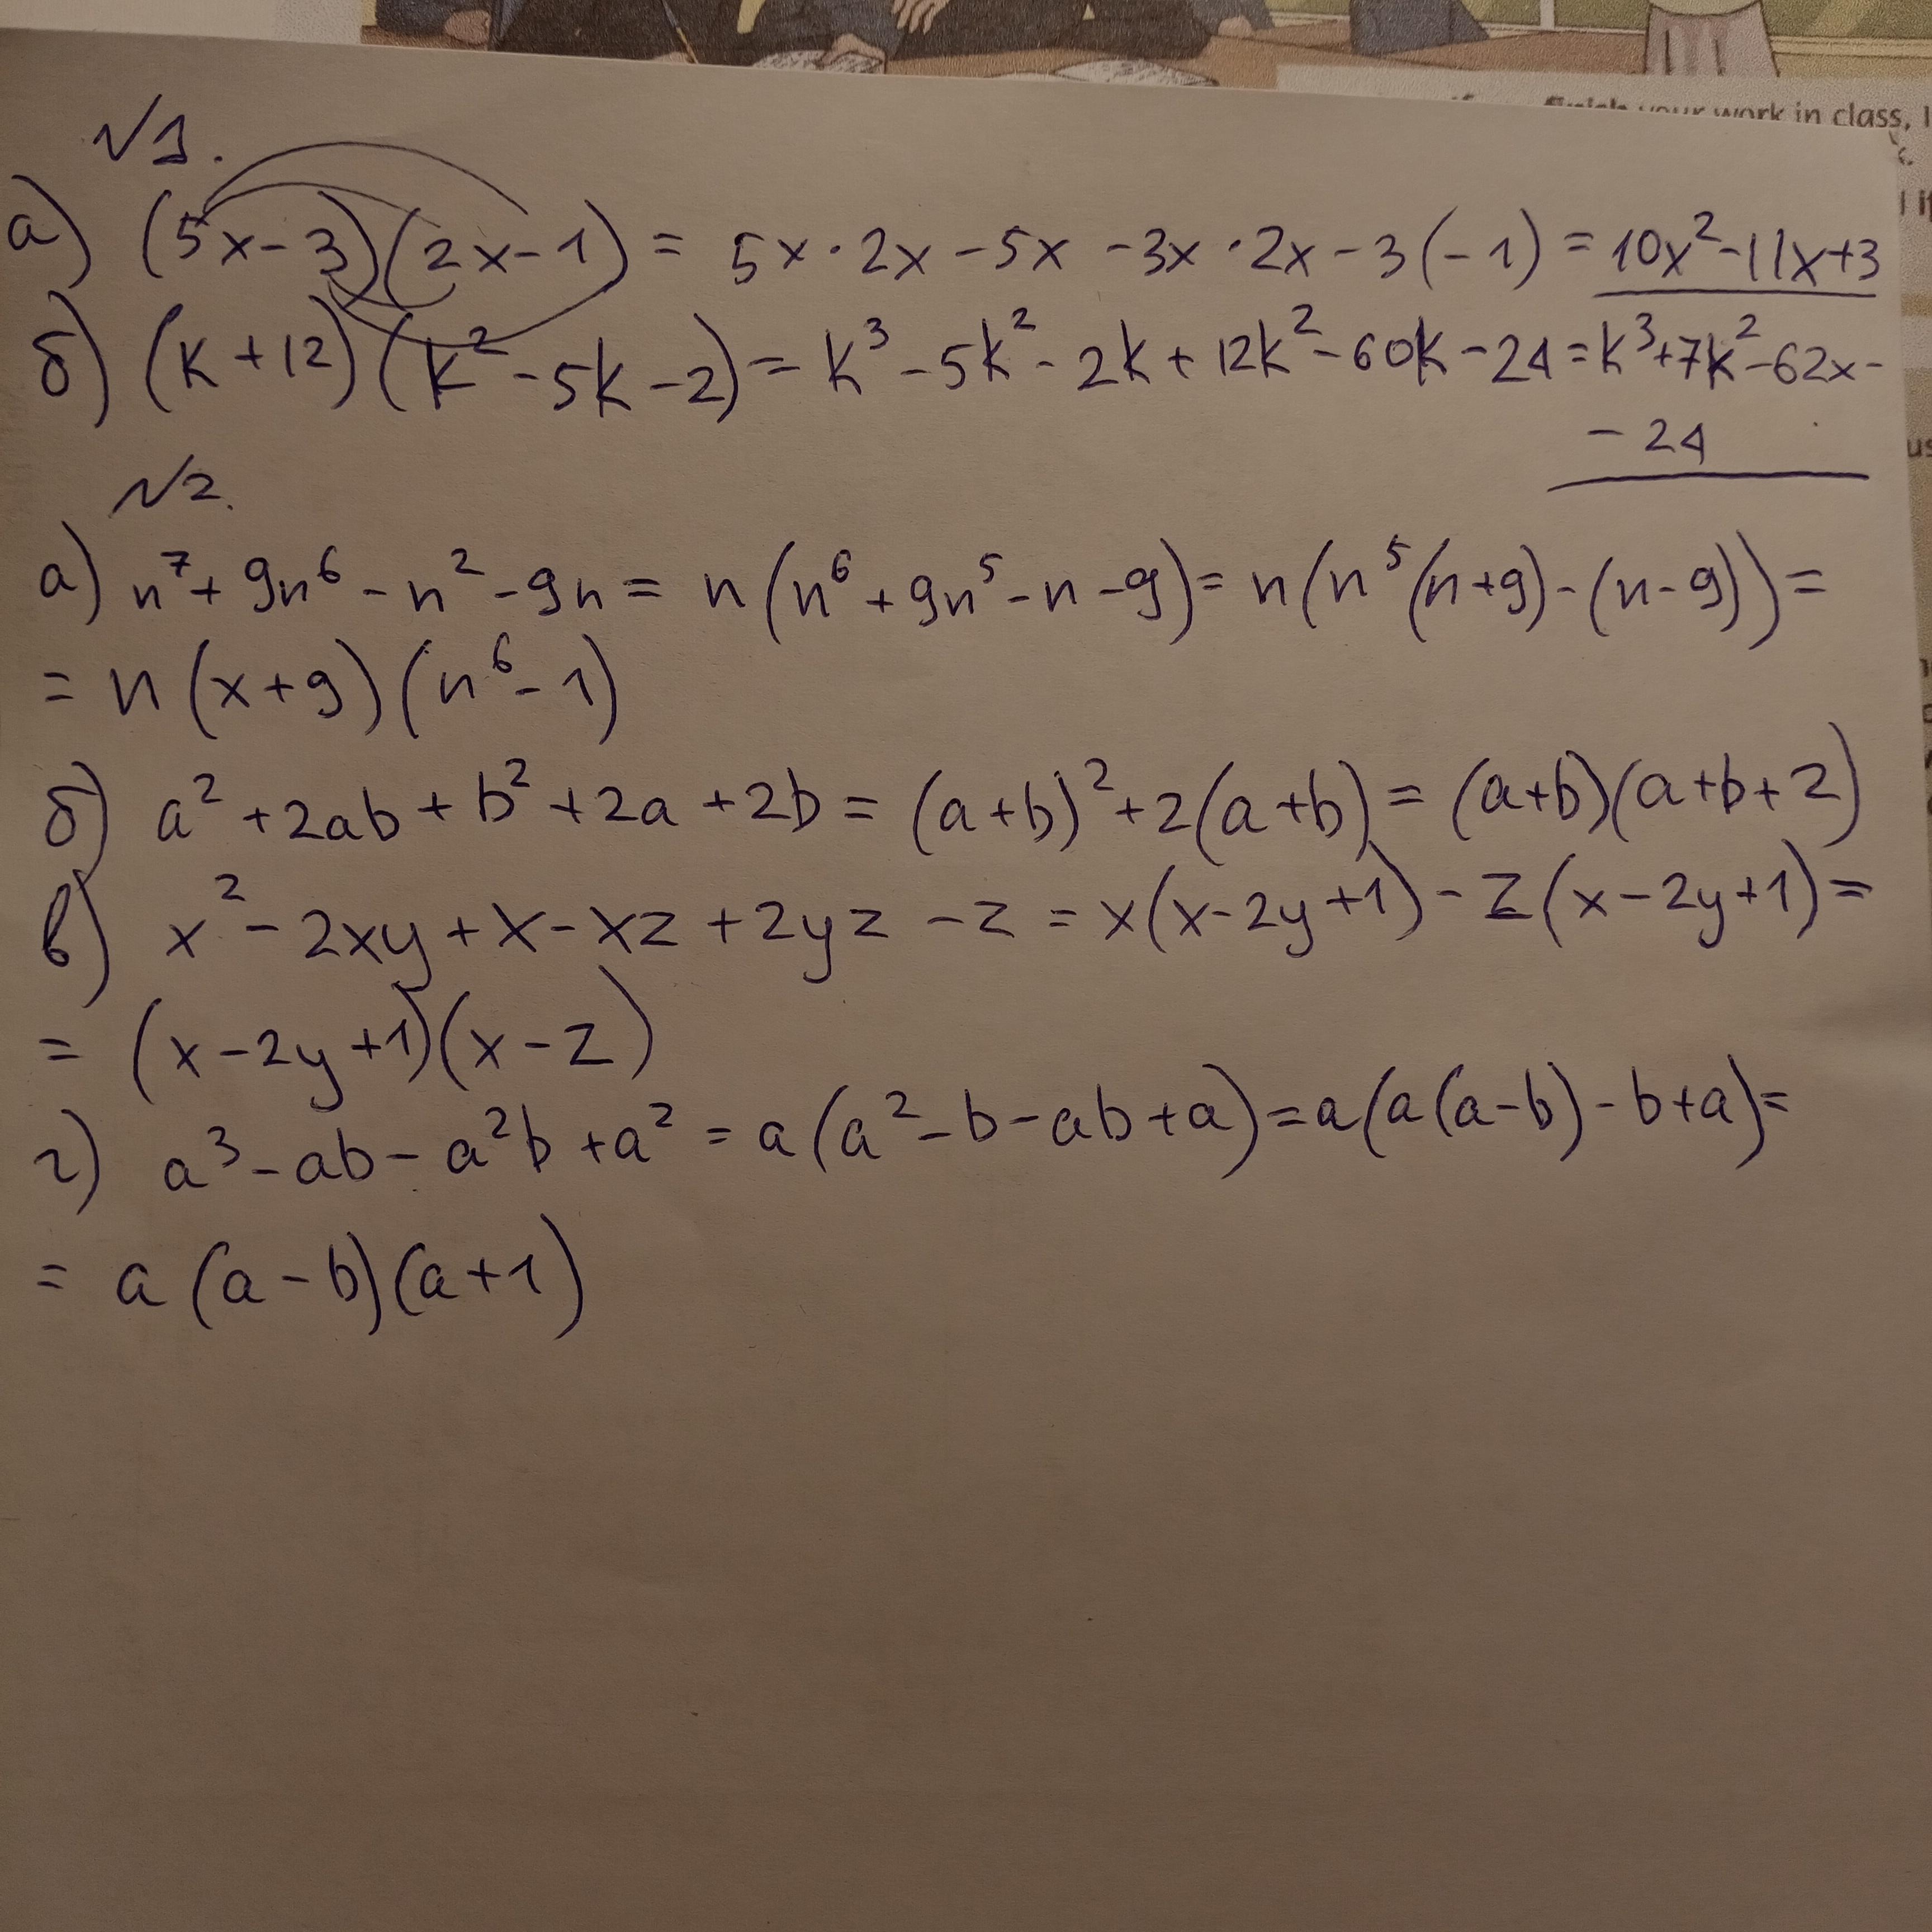 your work in class,
№1.
а) (5x-3)(2x-1) = 5x·2x-5x-3x·2x-3(-1)=10x²-11x+3
б) (k+12)(k²-5k-2)=k³-5k²-2k+12k²-60k-24=k³+7k²-62x-
-24
№2.
а) n⁷+9n⁶-n²-9n=n(n⁶+9n⁵-n-9)=n(n⁵(n+9)-(n-9))=
=n(x+9)(n⁶-1)
б) a²+2ab+b²+2a+2b=(a+b)²+2(a+b)=(a+b)(a+b+2)
в) x²-2xy+x-xz+2yz-z=x(x-2y+1)-z(x-2y+1)=
=(x-2y+1)(x-z)
г) a³-ab-a²b+a²=a(a²-b-ab+a)=a(a(a-b)-b+a)=
=a(a-b)(a+1)